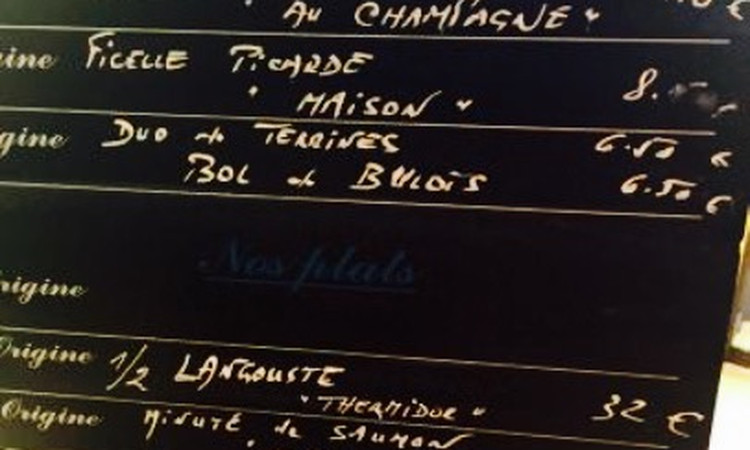 " Au CHAMPAGNE "
FICELLE PiCARDE
" MAiSON " 8.
gine Duo de TERRINES 6.50 €
BOL de BULOTS 6.50 €
Nos plats
rigine
Origine 1/2 LANGOUSTE
" THERMIDOR " 32 €
Origine MiNUTÉ de SAUMON